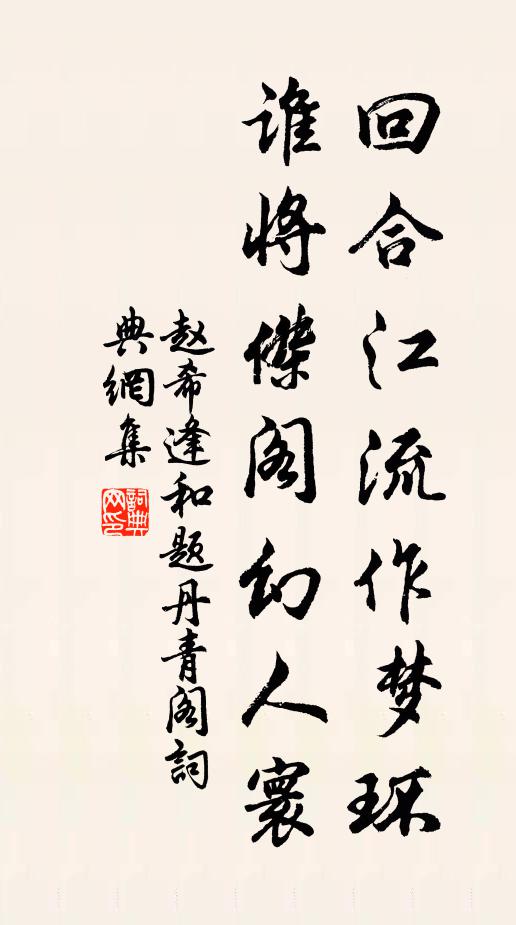 回合江流作梦环
谁将傑阁幻人寰
赵希逢和题丹青阁詞
典網集
詞典
网印